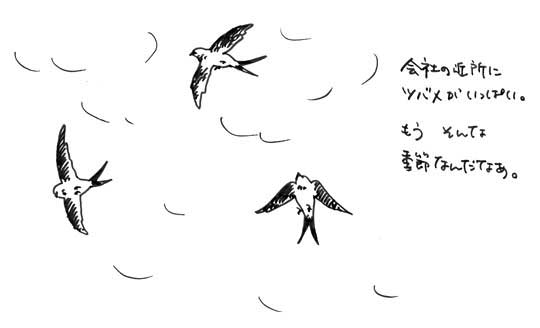 会社の近所に
ツバメがいっぱい。
もう そんな
季節なんだなあ。